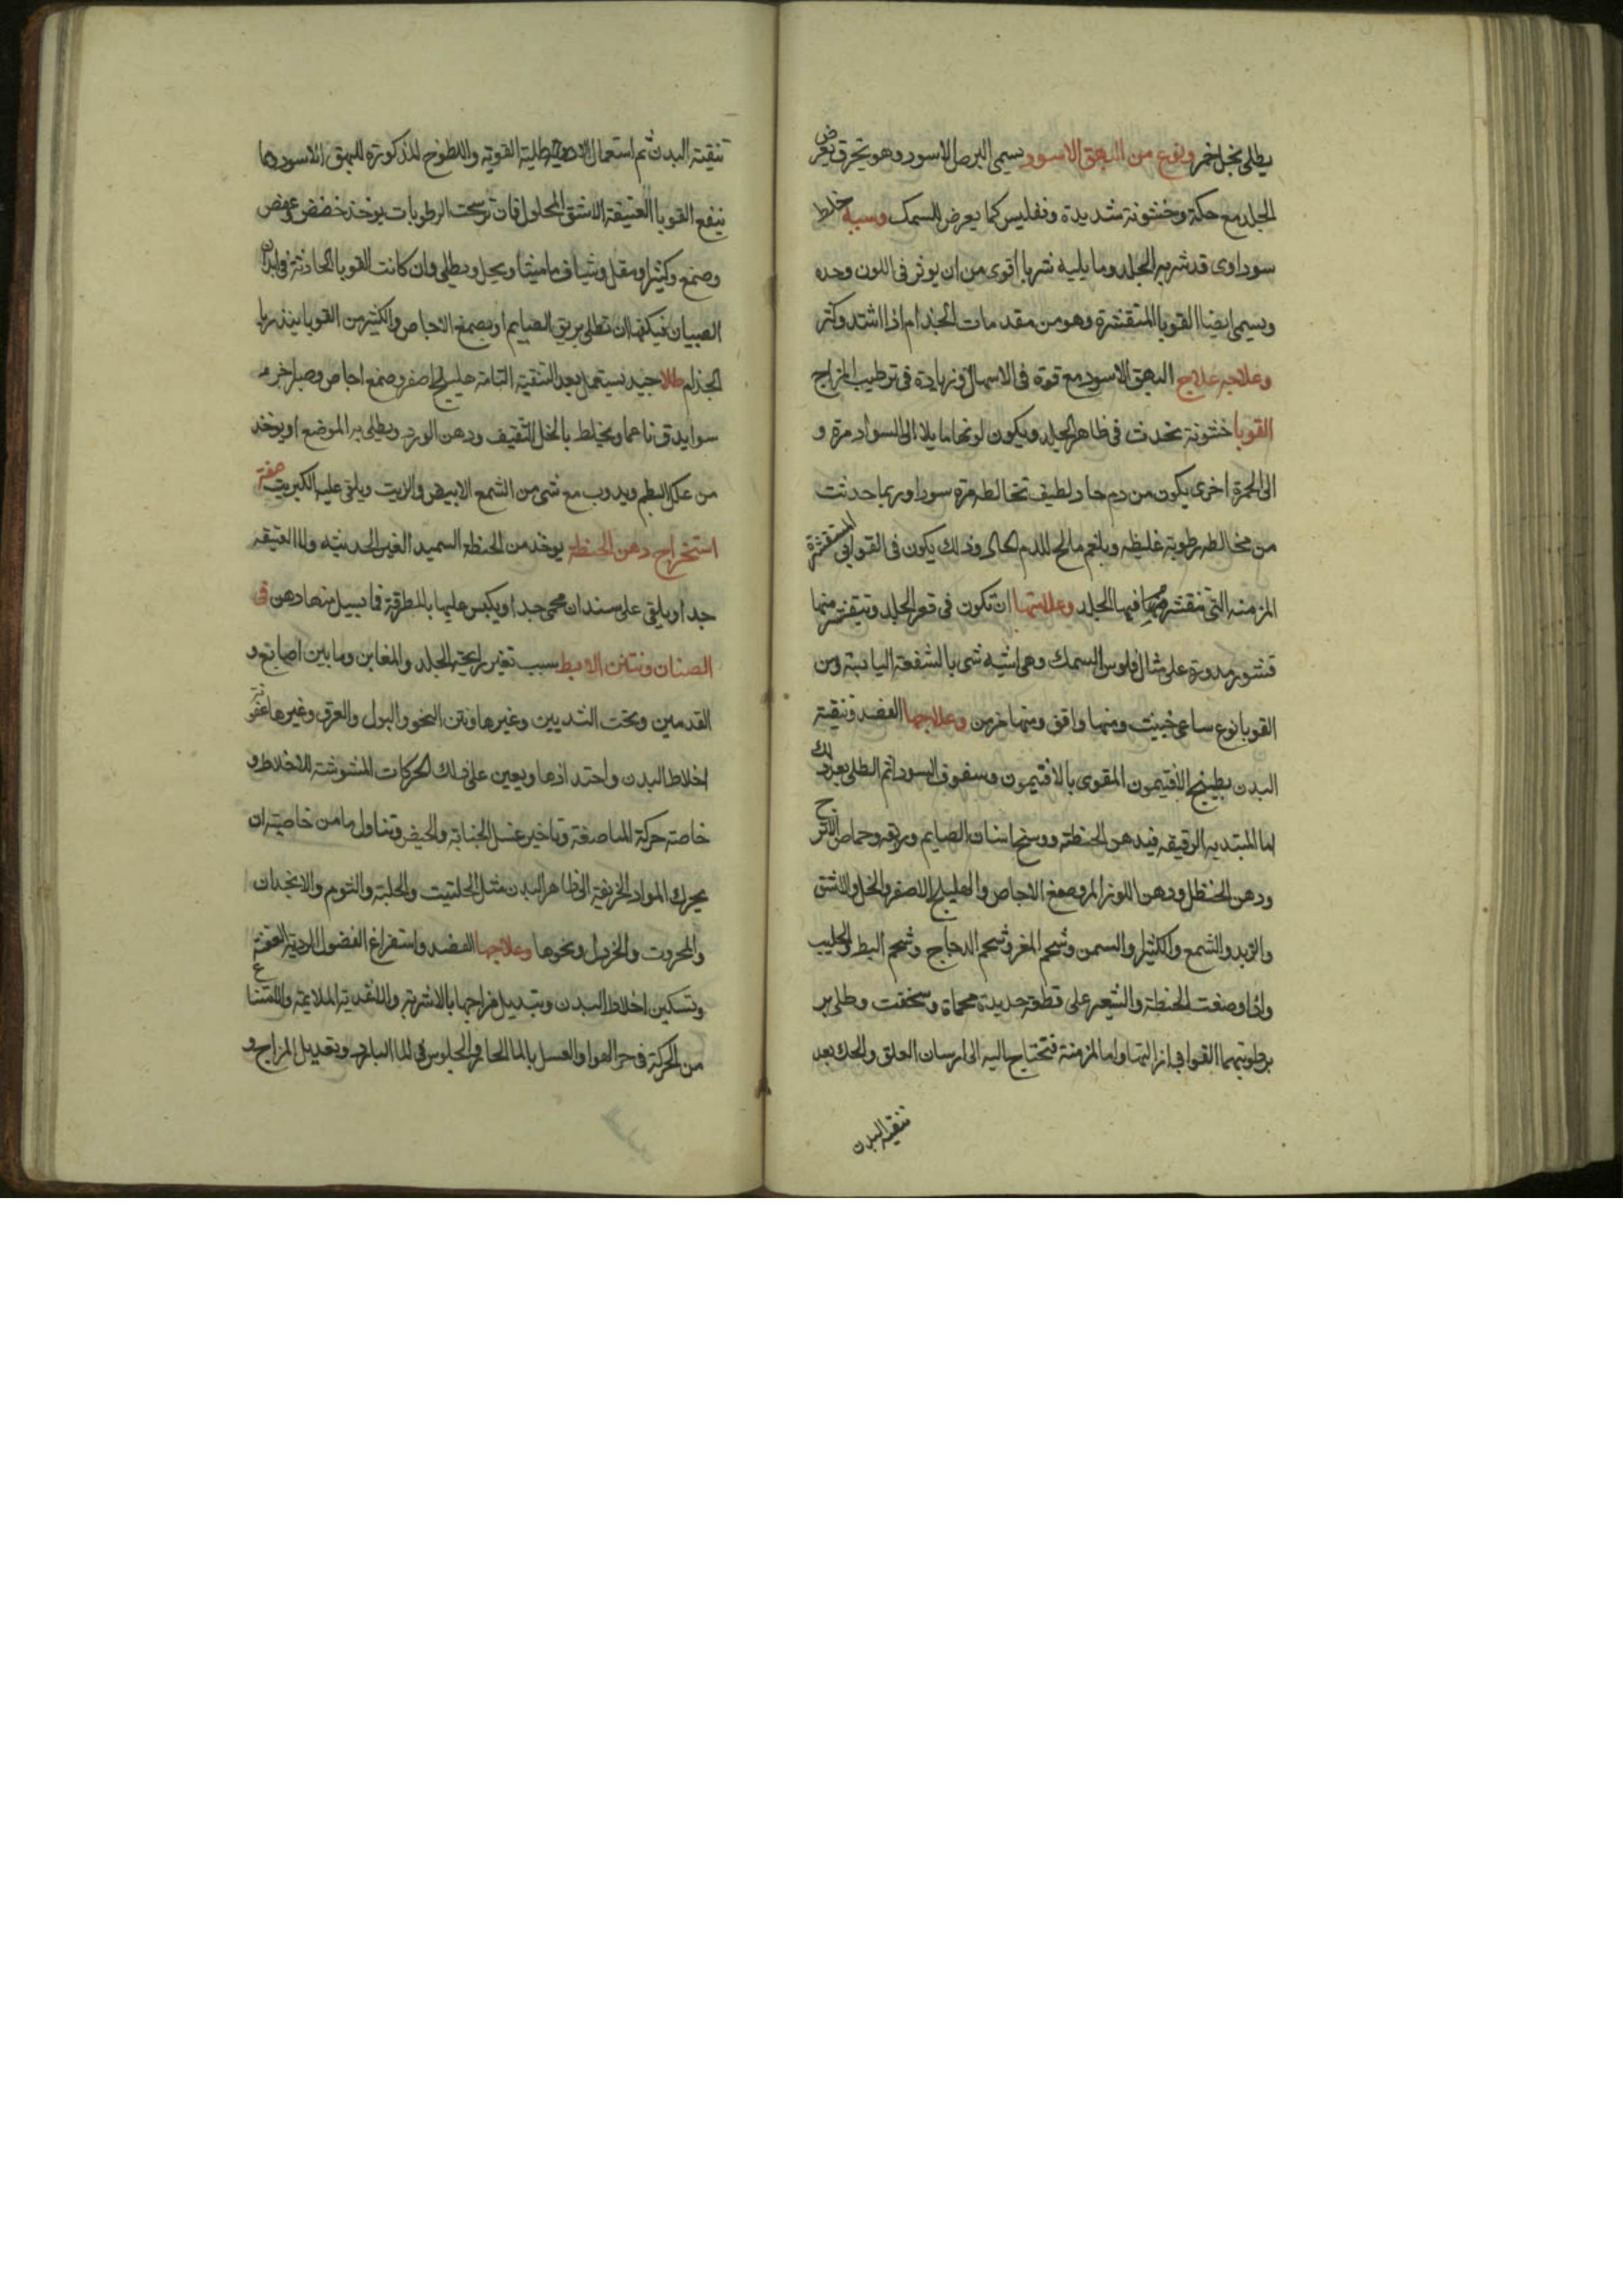 يطلى بخل خمر ونوع من البهق الاسود يسمى البرص الاسود وهو يخرق بعرض
الجلد مع حكة وخشونة شديدة وتفليس كما يعرض للسمك وسببه خلط
سوداوى قد شربه الجلد وما يليه شربا اقوى من ان يوثر فى اللون وحده
ويسمى ايضا القوبا المتقشرة وهو من مقدمات الجذام اذا اشتد وكثر
وعلاجه علاج البهق الاسود مع قوة فى الاسهال وزيادة فى ترطيب المزاج
القوبا خشونة تحدث فى ظاهر الجلد ويكون لونها مايلا الى السواد مرة و
الى الحمرة اخرى يكون من دم حاد لطيف تخالطه مرة سودا وربما حدثت
من مخالطه رطوبة غليظه وبلغم مالح للدم الحاد وذلك يكون فى القوابى المتقشرة
المزمنه التى تنقشر فيها الجلد وعلامتها ان تكون فى قعر الجلد وتتقشر منها
قشور مدورة على مثال فلوس السمك وهى اشبه شى بالشفعة اليابسة ومن
القوبا نوع ساعى خبيث ومنها واقف ومنها مزمن وعلاجها الفصد وتنقية
البدن بطبيخ الافتيمون المقوى بالافتيمون وسفوف السودا ثم الطلى بعد ذلك
اما المبتديه الرقيقه فبدهن الحنطة ووسخ اسنان الصايم وريقه وحماض الاترج
ودهن الحنظل ودهن اللوز المر وصمغ الاجاص والهليلج الاصفر والخل والاشق
والزبد والشمع والكثيرا والسمن وشحم المغر وشحم الدجاج وشحم البط والحليب
واذا وضعت الحنطة والشعير على قطعة حديدة محماة وسخقت وطلى بر
برطوبتهما القوابى ازالتها واما المزمنة فتحتاج اليه الى ارسان العلق والحك بعد
تنقية البدن
تنقية البدن ثم استعمال الاطلية القوية واللطوخ المذكورة للبهق الاسود وما
ينفع القوبا العتيقة الاشق المحلول فان ترسخت الرطوبات يوخذ خضض وعفص
وصمغ وكثيرا ومقل وشياف ماميثا ويحل ويطلى وان كانت القوبا الحادثة فى ابدان
الصبيان فيكفها ان تطلى بريق الصايم او بصمغ الاجاص والكثير من القوبا ينذر با
الجذام طلا جيد يستعمل بعد التنقية التامة هليلج اصفر وصمغ اجاص وصبر اجزا
سوا يدق ناعما ويخلط بالخل الثقيف ودهن الورد ويطلى به الموضع او يوخذ
من علك البطم ويدوب مع شى من الشمع الابيض والزيت ويلقى عليه الكبريت صفة
استخراج دهن الحنطة يوخذ من الحنطة السميد الغير الحديثه ولا العتيقه
جدا ويلقى على سندان محمى جدا ويكبس عليها بالمطرقة فما يسيل منها دهن فى
الصنان ونتن الابط سبب تغير رايحة الجلد والمغابن وما بين اصابع و
القدمين وتحت الثديين وغيرها ونتن البخور والبول والعرق وغيرها عفونة
اخلاط البدن واحتدادها ويعين على ذلك الحركات المشوشة للاخلاط و
خاصة حركة المباضعة وتاخير غسل الجنابة والحيض وتناول ما من خاصيته ان
يحرك المواد الحريفة الى ظاهر البدن مثل الحلتيت والحلبة والثوم والانجدان
والمحروت والخردل ونحوها وعلاجها الفصد واستفراغ الفضول الردية العفنة
وتسكين اخلاط البدن وتبديل مزاجها بالاشربة والاغدية الملايمة والامتناع
من الحركة فى حر الهوا والغسل بالما الحار والجلوس فى الما البارد وتعديل المزاج و